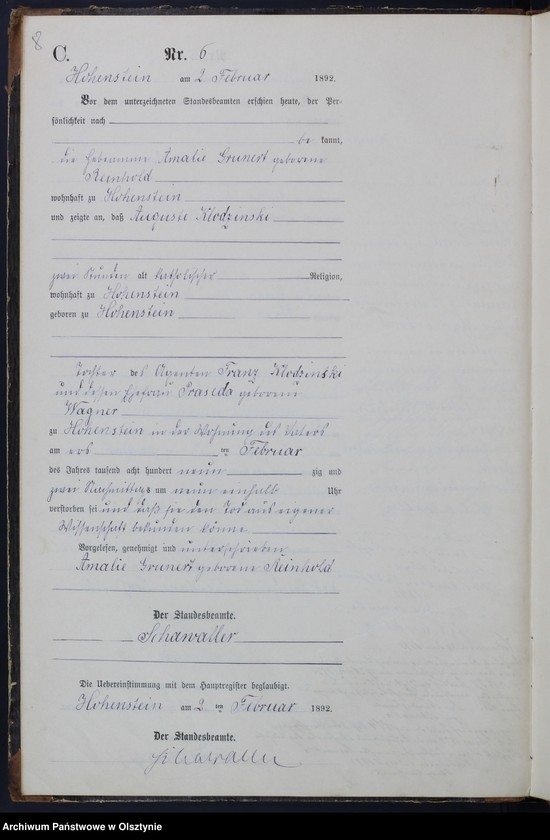 8
C.
Nr. 6
Hohenstein am 2 Februar 1892.
Vor dem unterzeichneten Standesbeamten erschien heute, der Per-
sönlichkeit nach
be kannt,
die Hebamme Amalie Grunert geborene
Reinhold
wohnhaft zu Hohenstein
und zeigte an, daß Auguste Klodzinski
zwei Stunden alt katholischer Religion,
wohnhaft zu Hohenstein
geboren zu Hohenstein
Tochter des Agenten Franz Klodzinski
und dessen Ehefrau Praseda geborene
Wagner
zu Hohenstein in der Wohnung des Vaters
am ers ten Februar
des Jahres tausend acht hundert neun zig und
zwei Nachmittags um neun einhalb Uhr
verstorben sei und daß sie den Tod aus eigener
Wissenschaft bekunden könne
Vorgelesen, genehmigt und unterschrieben
Amalie Grunert geborene Reinhold
Der Standesbeamte.
Schawaller
Die Uebereinstimmung mit dem Hauptregister beglaubigt.
Hohenstein am 2 ten Februar 1892.
Der Standesbeamte.
Schawaller
Archiwum Państwowe w Olsztynie